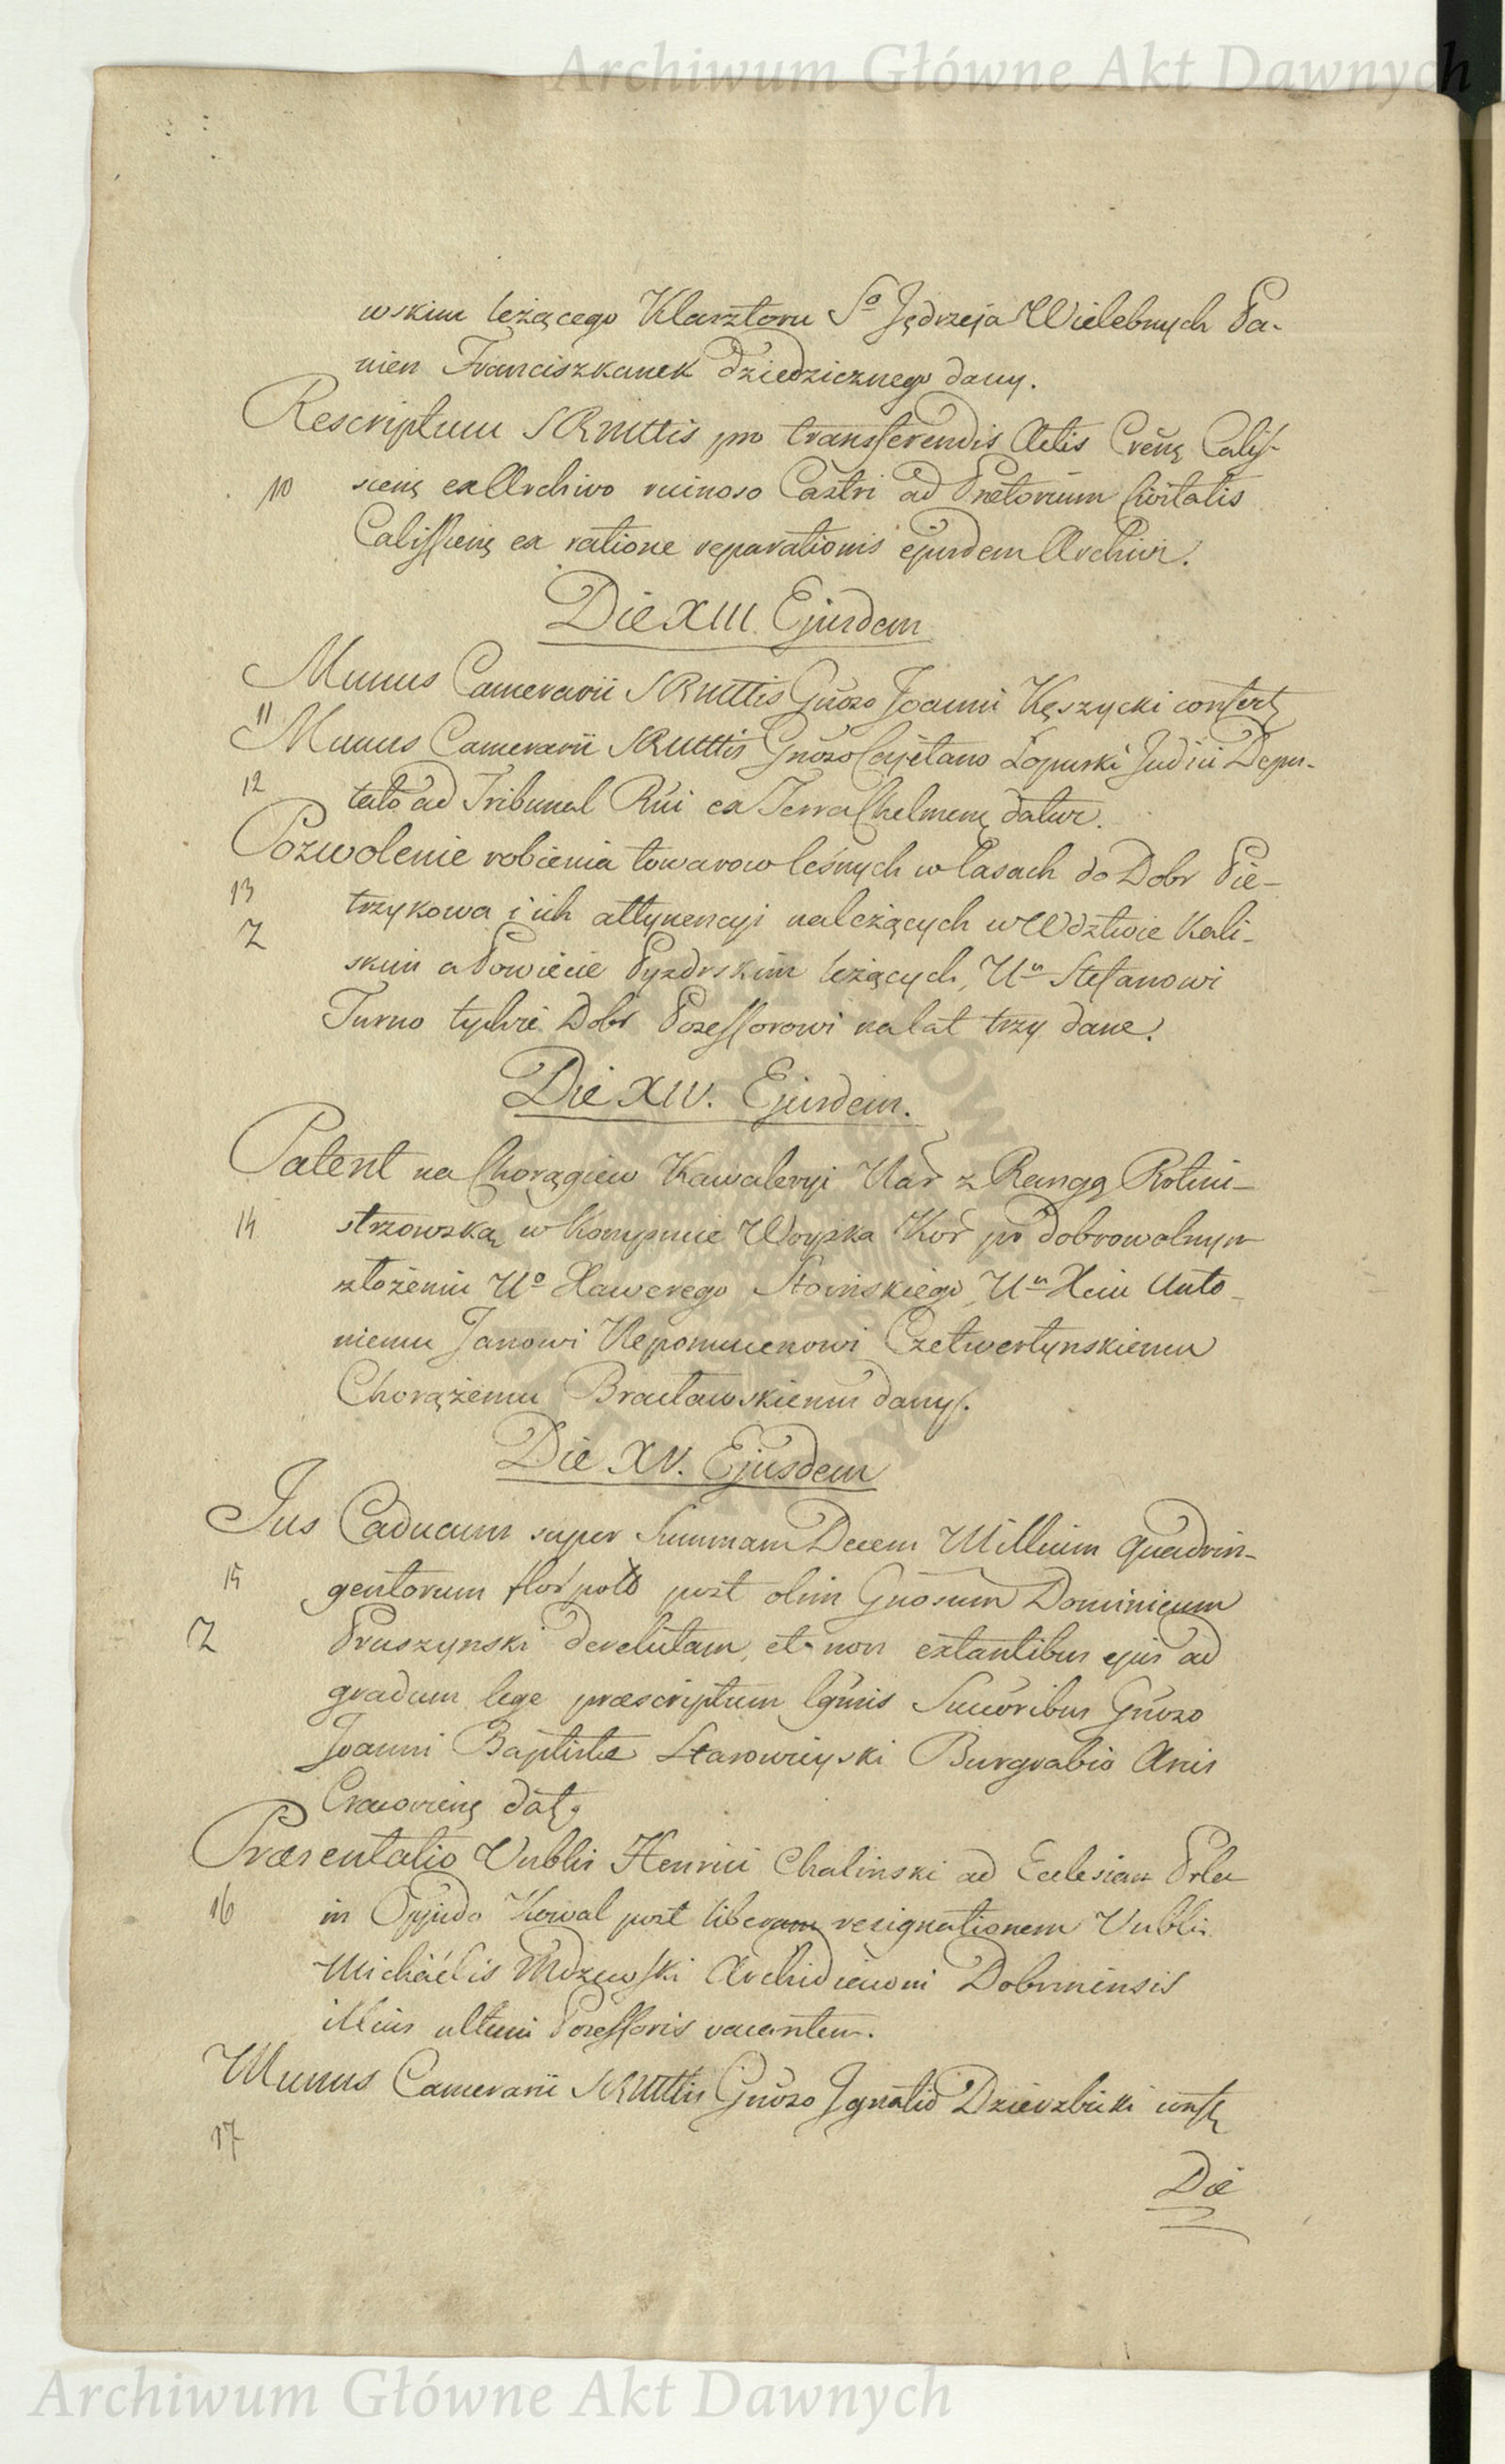 Archiwum Główne Akt Dawnych
wskim leżącego Klasztoru Sº Jędrzeja Wielebnych Pa-
nien Franciszkanek dziedzicznego dany.
Rescriptum SRMttis pro transferendis Actis Cren̄ę Calis-
10 sien̄ę ex Archivo ruinoso Castri ad Prætorium Civitatis
Calissien̄ę ex ratione reparationis ejusdem Archivi.
Die XIII. Ejusdem
Munus Camerarii SRMttis Gn̄oso Joanni Kęszycki confertę
11
Munus Camerarii SRMttis Gn̄oso Cajetano Łopuski Judici Depu-
12 tato ad Tribunal Rn̄i ex Terra Chelmen̄ę datur.
Pozwolenie robienia towarow leśnych w lasach do Dobr Pie-
13 trzykowa i ich attynencyi należących w Wdztwie Kali-
Z
skim a Powiecie Pyzdrskim leżących, Uᵘ Stefanowi
Turno tychże Dobr Possessorowi na lat trzy dane.
Die XIV. Ejusdem.
Patent na Chorągiew Kawaleryi Nar z Rangą Rotmi-
14 strzowską w Kompucie Woyska Kor po dobrowolnym
złożeniu Uº Xawerego Stoinskiego, Uᵘ Xciu Anto-
niemu Janowi Nepomucenowi Czetwertynskiemu
Chorążemu Bracławskiemu dany.
Die XV. Ejusdem
Jus Caducum super Summam Decem Millium quadrin-
15 gentorum flor polo post olim Gn̄osum Dominicum
Z Pruszynski derelictam, et non extantibus ejus ad
gradum lege præscriptum lgn̄is Succoribus Gn̄oso
Joanni Baptistæ Starowieyski Burgrabio Arcis
Cracovien̄ę datę.
Præsentatio Vnblis Henrici Chalinski ad Ecclesiam Prlem
16 in Oppido Kowal post liberam resignationem Vnblis
Michäelis Mdzewski Archidiaconi Dobrinensis
illius ultimi Possessoris vacantem.
Munus Camerarii SRMttis Gn̄oso Ignatio Dzierzbicki confę
17
Die
Archiwum Główne Akt Dawnych